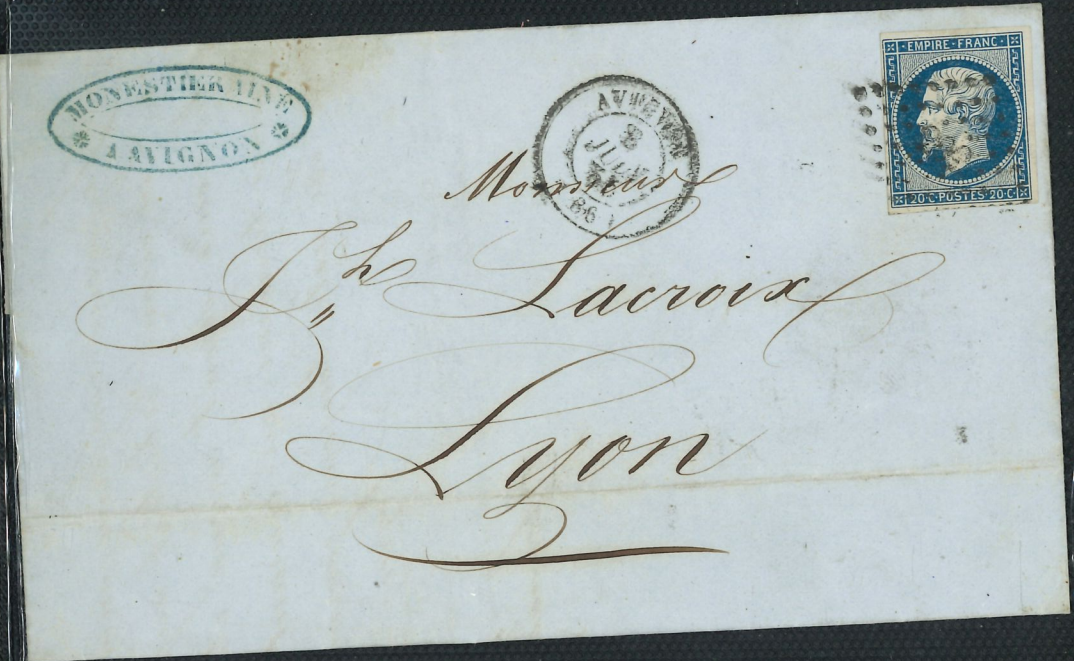 MONESTIER AINÉ
A AVIGNON
8
JUIL
86
EMPIRE · FRANC ·
20 · C · POSTES · 20 · C ·
Monsieur
Jh Lacroix
Lyon